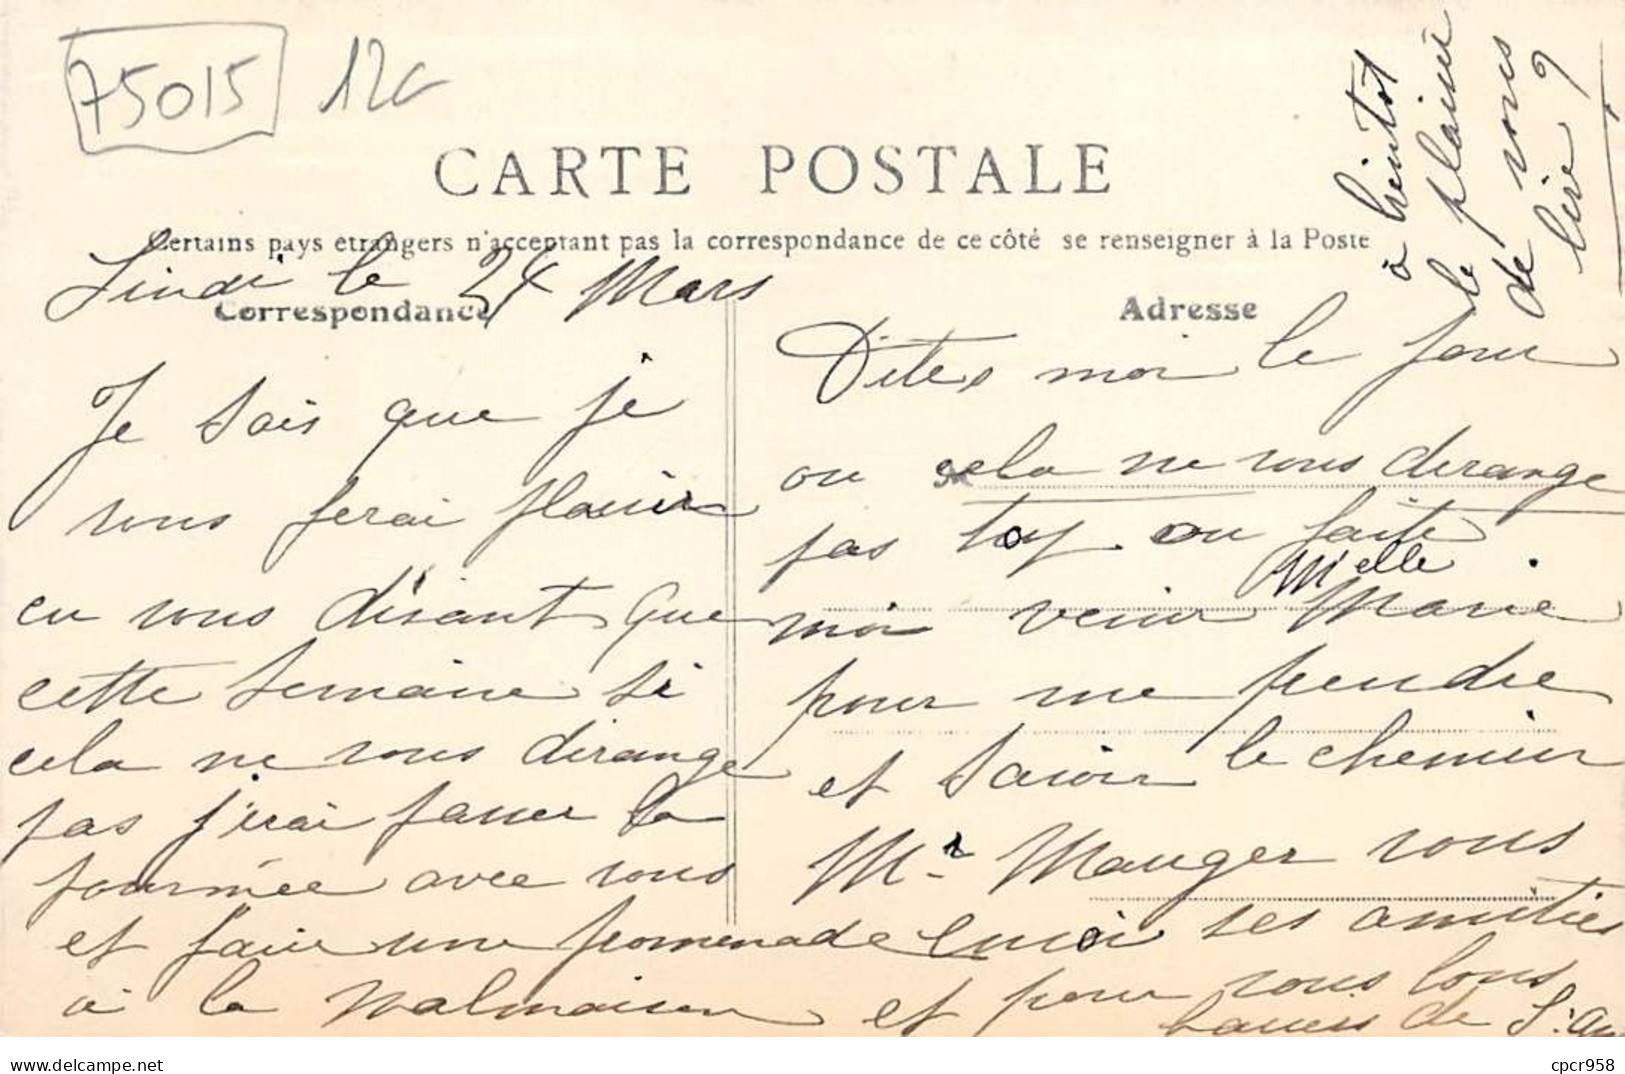 75015 12€
CARTE POSTALE
Certains pays étrangers n'acceptant pas la correspondance de ce côté se renseigner à la Poste
Correspondance
Adresse
Lindi le 24 Mars
Je sais que je
vous ferai plaisir
en vous disant que
cette semaine si
cela ne vous dérange
pas j'irai passer la
journée avec vous
et faire une promenade
à la Malmaison
Dites moi le jour
ou cela ne vous derange
pas toy ou faite
moi venir Mielle Marie
pour me prendre
et savoir le chemin
Mr Mauger vous
envoi ses amitiés
et pour vous tous
baisers de
à bientot
le plaisir
de vous
lire
cpcr958